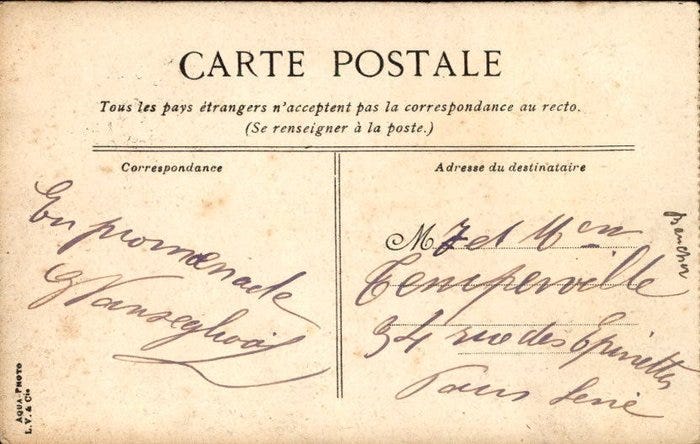 CARTE POSTALE
Tous les pays étrangers n'acceptent pas la correspondance au recto.
(Se renseigner à la poste.)
Correspondance
Adresse du destinataire
En promenade
M et
34 rue des Epinettes
Paris
AQUA-PHOTO
L. V. & Cie